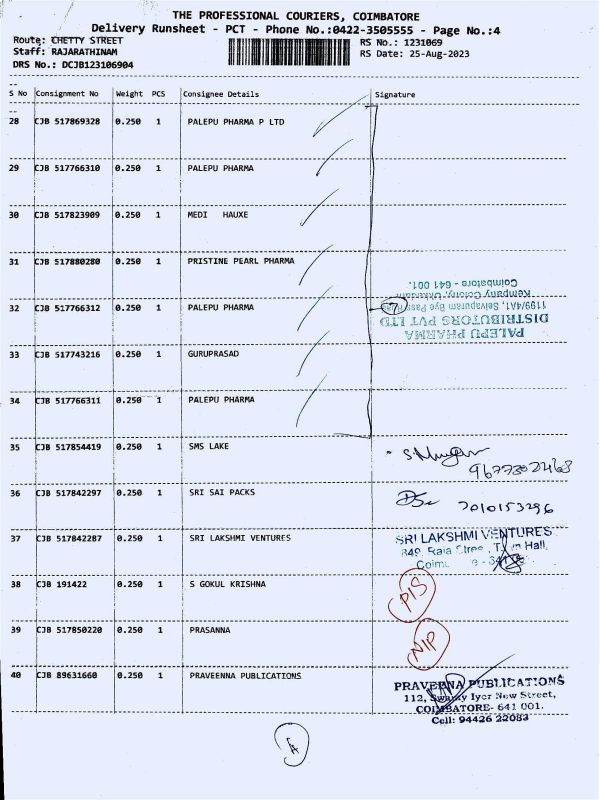 THE PROFESSIONAL COURIERS, COIMBATORE
Delivery Runsheet - PCT - Phone No.:0422-3505555 - Page No.:4
Route: CHETTY STREET
RS No.: 1231069
Staff: RAJARATHINAM
RS Date: 25-Aug-2023
DRS No.: DCJB123106904
S No Consignment No Weight PCS Consignee Details Signature
28 CJB 517869328 0.250 1 PALEPU PHARMA P LTD
29 CJB 517766310 0.250 1 PALEPU PHARMA
30 CJB 517823909 0.250 1 MEDI HAUXE
31 CJB 517880280 0.250 1 PRISTINE PEARL PHARMA
32 CJB 517766312 0.250 1 PALEPU PHARMA
7
PALEPU PHARMA
DISTRIBUTORS PVT LTD
1199/4A1, Selvapuram Bye Pass
Kempany Colony, Ukkadam
Coimbatore - 641 001.
33 CJB 517743216 0.250 1 GURUPRASAD
34 CJB 517766311 0.250 1 PALEPU PHARMA
35 CJB 517854419 0.250 1 SMS LAKE
9677302468
36 CJB 517842297 0.250 1 SRI SAI PACKS
7010153296
37 CJB 517842287 0.250 1 SRI LAKSHMI VENTURES
SRI LAKSHMI VENTURES
849, Raja Street, Town Hall,
38 CJB 191422 0.250 1 S GOKUL KRISHNA
PIS
39 CJB 517850220 0.250 1 PRASANNA
NIP
40 CJB 89631660 0.250 1 PRAVEENNA PUBLICATIONS
PRAVEENA PUBLICATIONS
112, Swamy Iyer New Street,
COIMBATORE- 641 001.
Cell: 94426 22083
A